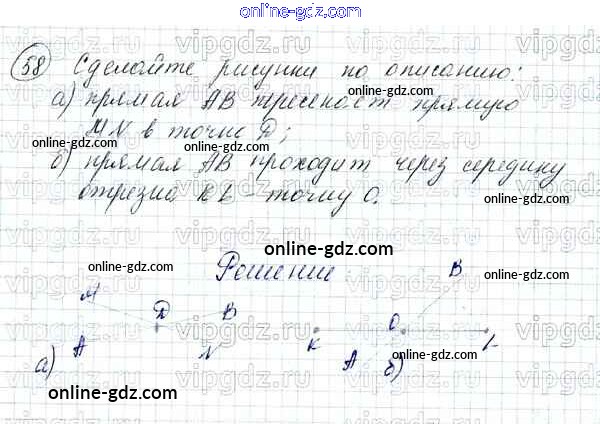 online-gdz.com
58 Сделайте рисунки по описанию:
а) прямая AB пересекает прямую
MN в точке D;
б) прямая AB проходит через середину
отрезка KL – точку O.
online-gdz.com
online-gdz.com
online-gdz.com
Решение
online-gdz.com
online-gdz.com
online-gdz.com
B
M
D B O
A N K L
а) A б)
online-gdz.com
online-gdz.com
online-gdz.com